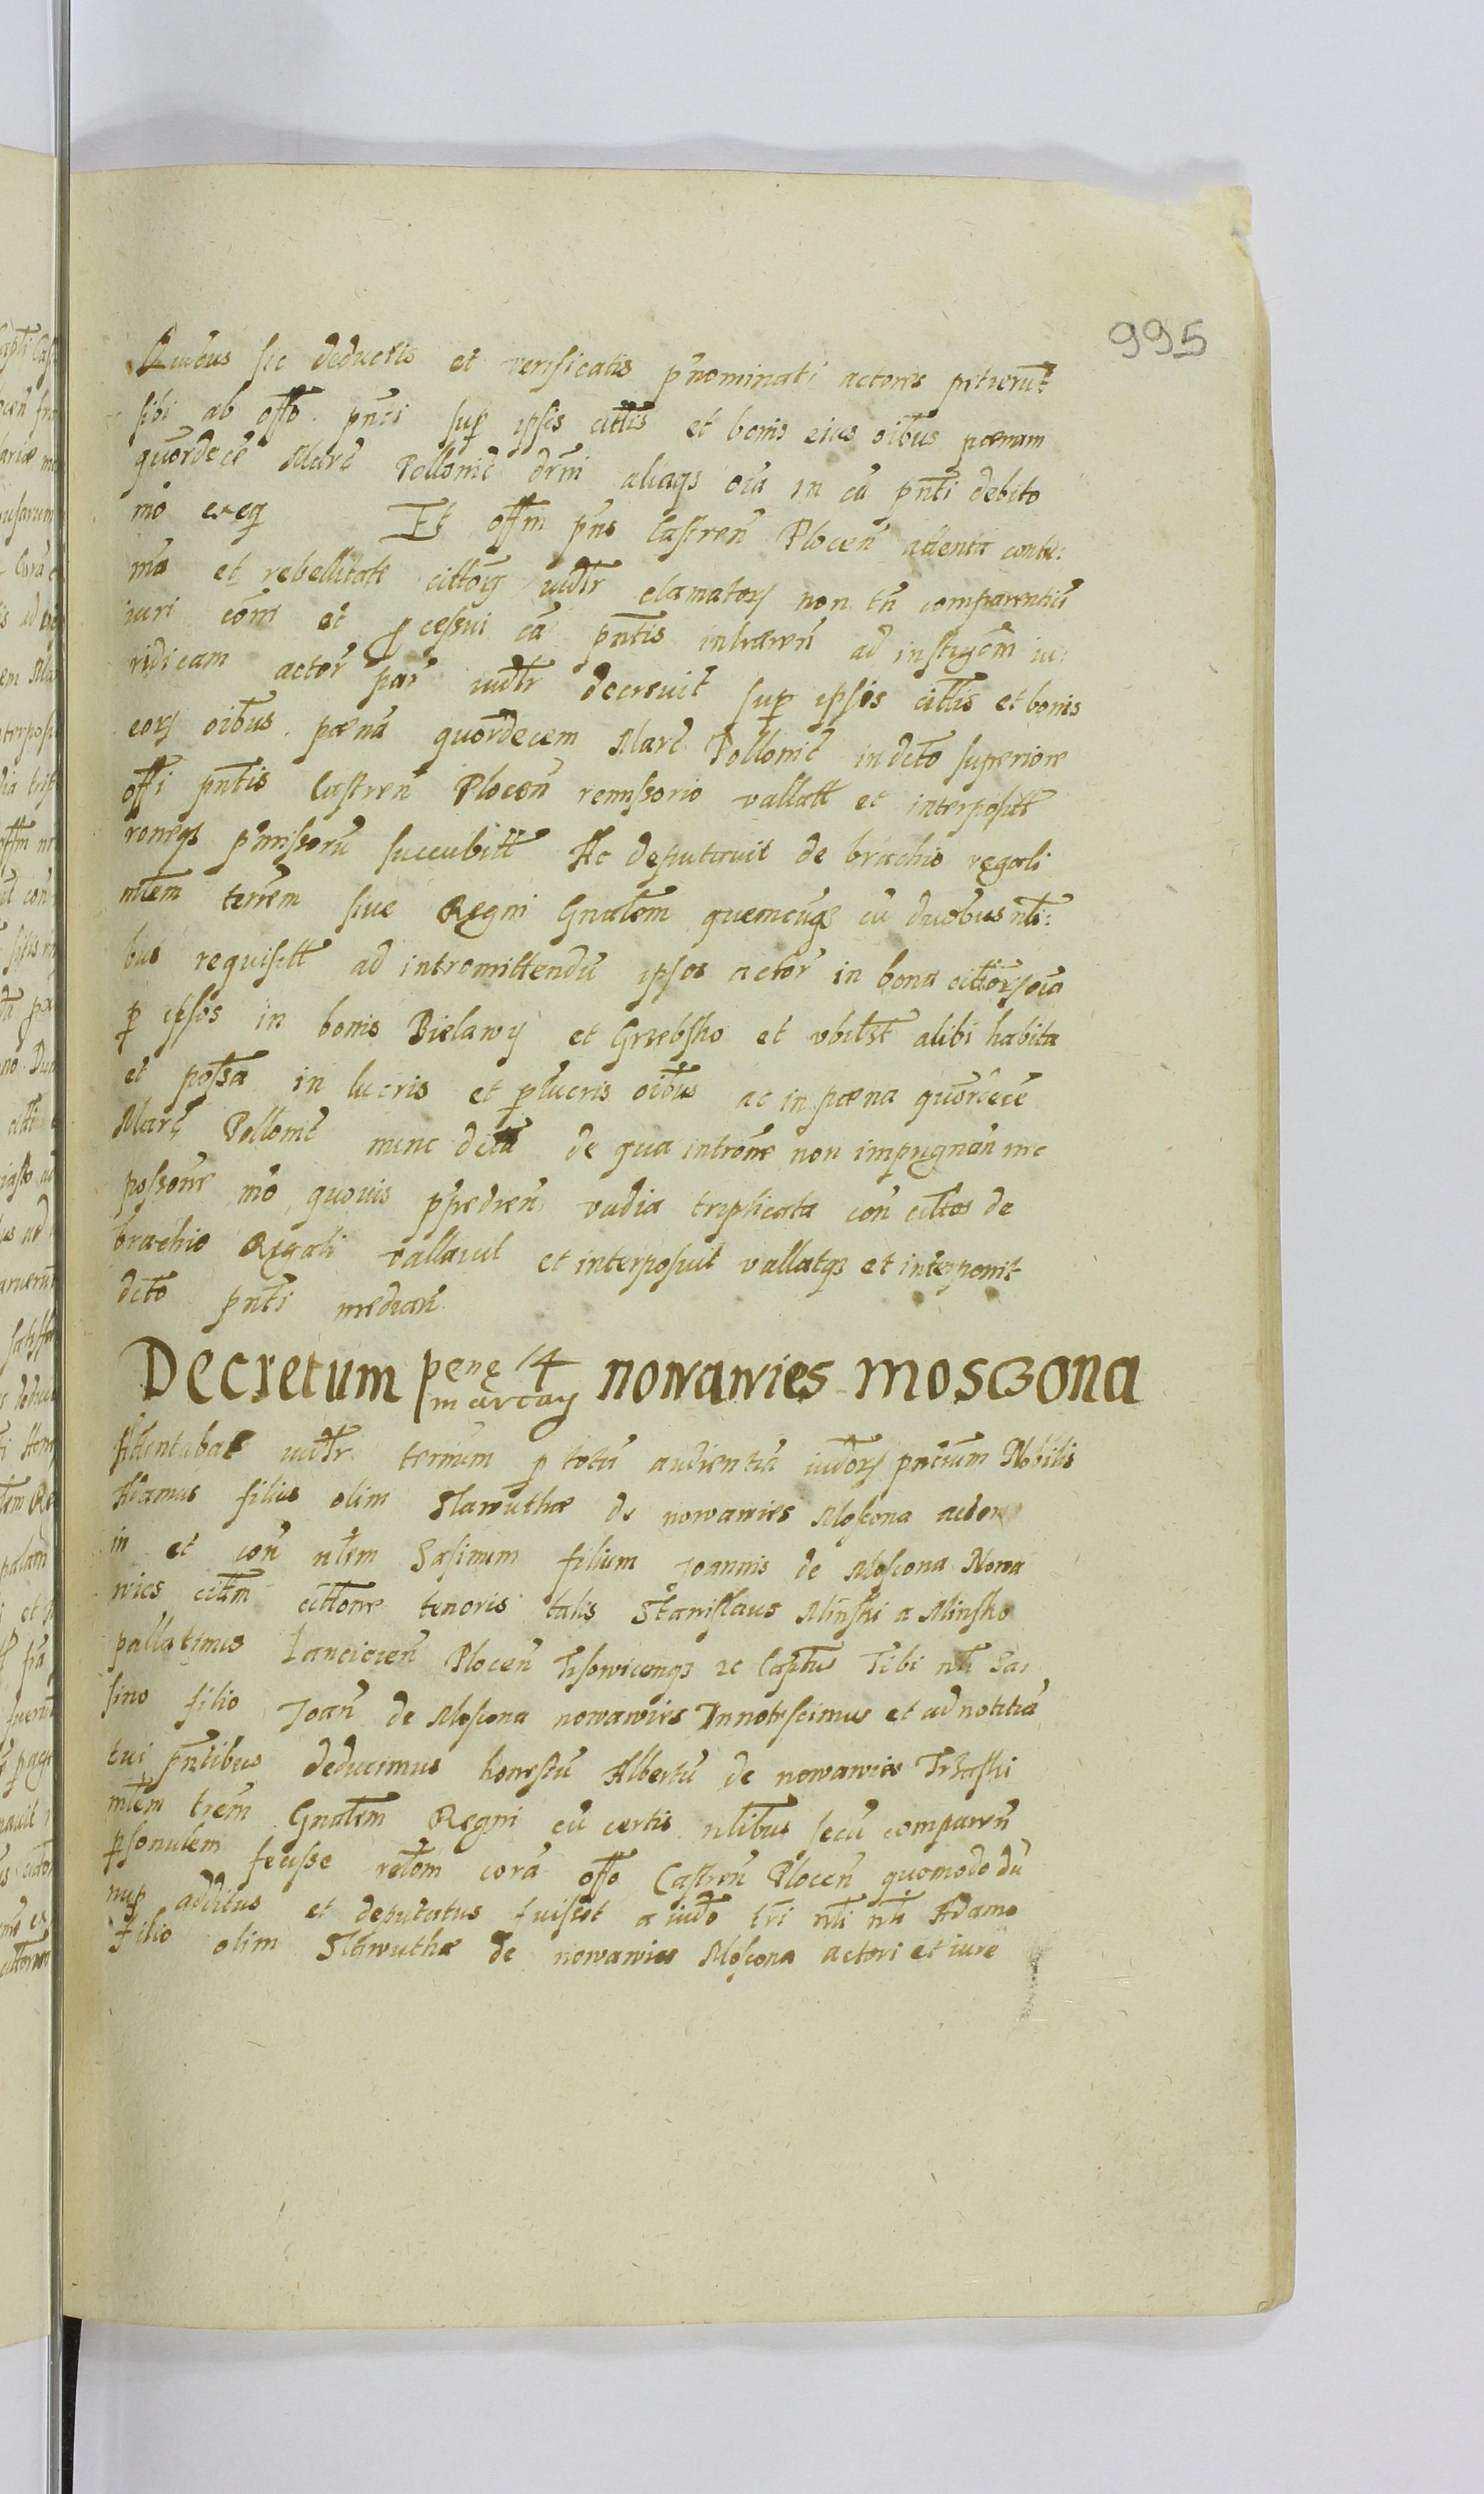 995
Quibus sic deductis et verificatis p̃nominati actores petierũt
sibi ab offo p̃nti sup ipsis cittis et bonis eius oĩbus pœnam
quordecẽ Marc̃ Pollonic̃ dr̃ni aliaqs oĩa in cã pñti debito
mõ exeq Et offm p̃ns Castren̄ Plocen̄ attenta contu:
ma et rebellitate cittorȝ iudtr clamatorȝ non tñ comparentiũ
iuri cõmi et pcessui cã pñtis inhæren̄ ad instigcõm iu:
ridicam actor par iudtr decrevit sup ipsis cittis et bonis
eorȝ oĩbus pœnã quordecem Marc̃ Pollonic̃ in dcto superiore
offi pñtis Castren̄ Plocen̄ remissorio vallatt et interpositt
roneqȝ p̃missorũ succubitt Ac deputavit de brachio regali
mlem terrẽm sive Regni Gnalem quemcũqȝ cũ duobus nli:
bus requisitt ad intromittendũ ipsos actor̃ in bona cittorȝ oĩa
p ipsos in bonis Bielawy et Grzebsko et vbilst alibi habita
et possa in lucris et plucris oĩbus ac in pœna quordecẽ
Marc̃ Pollonic̃ nunc dcta de qua introne non impugnan̄ nec
possone mõ quovis p̃pedien̄ vadia triplicata con cittos de
brachio Regali vallavit et interposuit vallatqȝ et interponit
dcto pñti median̄
Decretum penę 14 marcarȝ nowawies moszona
Attentabat iudtr terminum p totã audientiã iudorȝ pñtium Nobilis
Adamus filius olim Slawuthæ de nowawies Moscona actor
in et con̄ nlem Sasinum filium Joannis de Moscona Nowa
wies cittm cittone tenoris talis Stanislaus Minski a Minsko
pallatinus Lancicien̄ Plocen̄ Lisowicenqȝ zc Captus Tibi nli Sa:
sino filio Joan̄ de Moscona nowawies Innotescimus et ad notitiã
tui pñtibus deducimus honestũ Albertũ de nowawies Trzaski
mlem trẽm Gnalem Regni cũ certis nlibus secũ comparen̄
psonalem fecisse relom corã offo Castren̄ Plocen̄ quomodo dũ
nup additus et deputatus fuisset a iudo tri nli nli Adamo
filio olim Slawuthæ de nowawies Moscona actori et iure